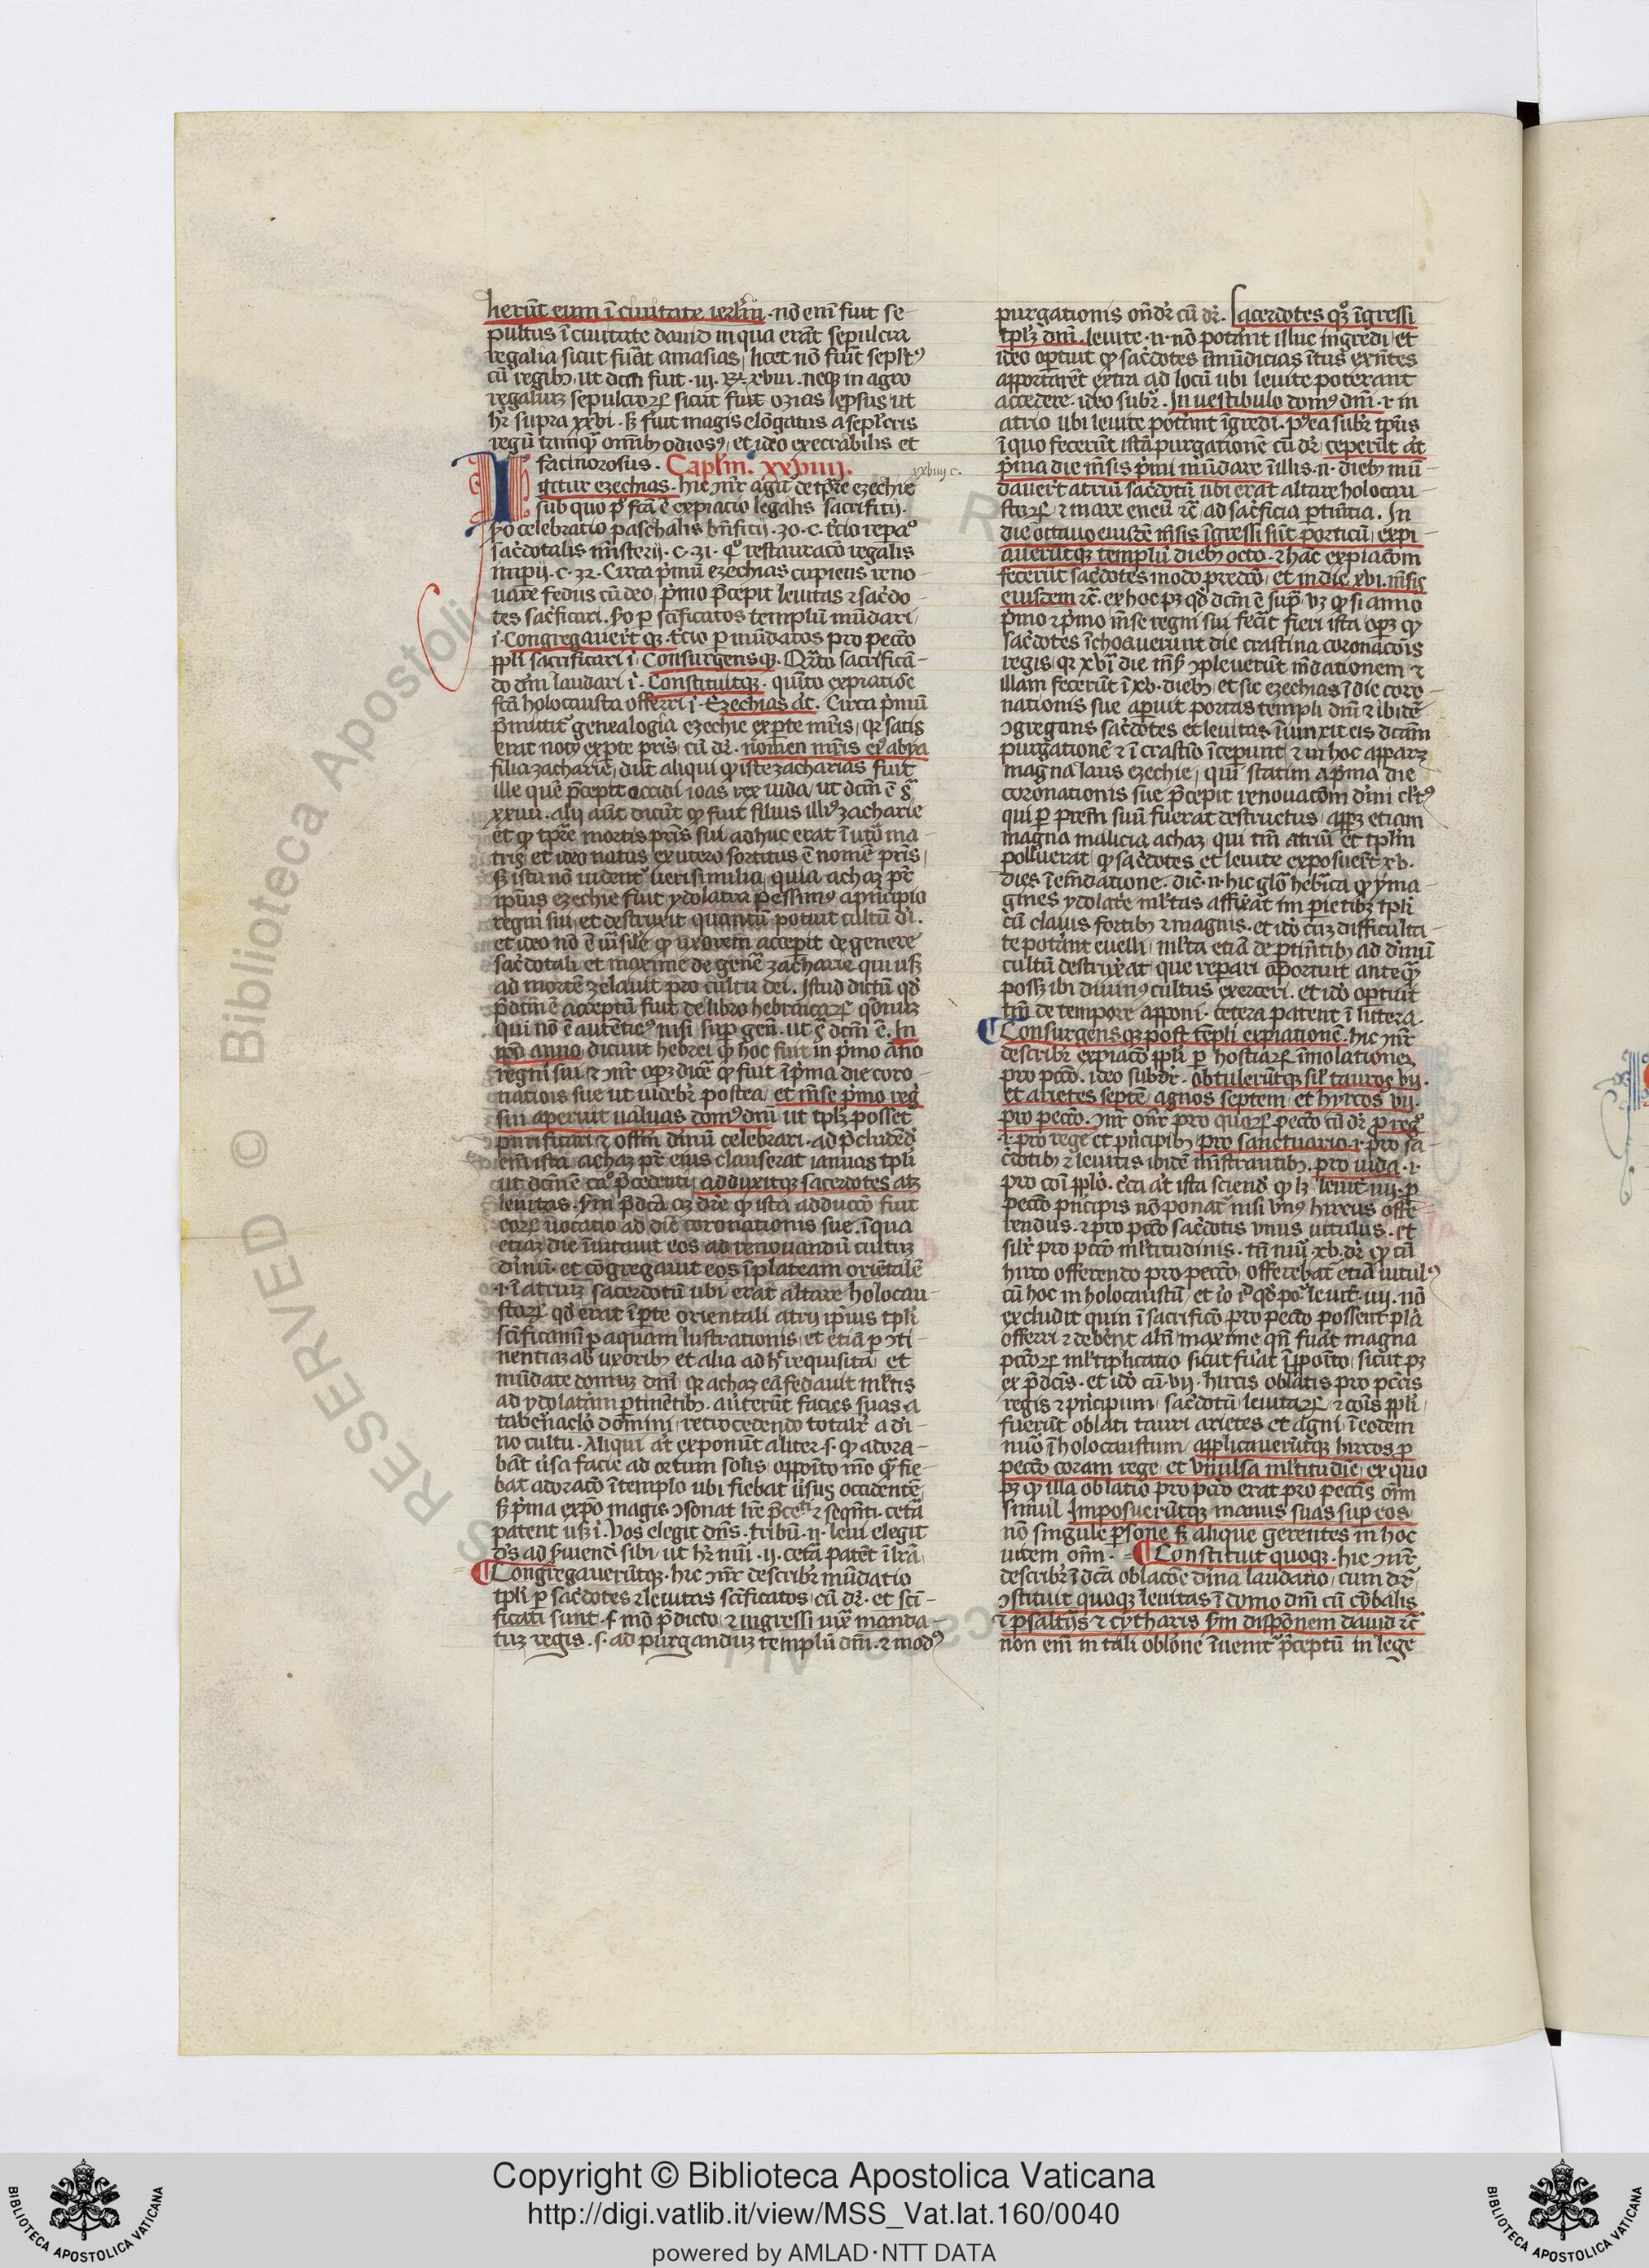 herūt eum ī ciuitate ierl̄m · nō enī fuit se-
pultus ī ciuitate dauid in qua erāt sepulcra
regalia sicut fūat amasias, licet nō fuīt seplt9
cū regibȝ, ut dcm fuit · iii. Rͤ. xviii · neqȝ in agro
regaliuȝ sepulcroꝝ sicut fuit ozias leprosus ut
hr̄ supra xxvi · sȝ fuit magis elōgatus a seplc̄ris
regū tamqȝ̄ omībȝ odios9, et ideo execrabilis et
facinorosus. Caplm̄. xxviiij.
xxviiij c.
Igitur ezechias · hic ↄn̄r agit̄ de tp̄re ezechie
sub quo pº fc̄a ē expiacio legalis sacrifitij.
2o celebratio paschalis bn̄fitij · 30 · c. t̄cio reparº
sac̄dotalis mīsterij · c · 31 · qº restauracō regalis
imperij · c · 32. Circa p̄mū ezechias cupiens reno-
uare fedus cū deo, p̄mo p̄cepit leuitas ⁊ sac̄do-
tes sac̄ficari. 2o ꝑ sc̄ificatos templū mūdari,
i · Congregauer̄t qȝ · t̄cio ꝑ mūdatos pro pecc̄o
ppl̄i sacrificari i · Consurgensqȝ. Qr̄to sacrificā-
do dm̄ laudari i · Constituitqȝ · quīto expiatiōe
fc̄a holocausta offerri i · Ezechias at̄. Circa p̄mū
p̄mittit̄ genealogia ezechie ex ꝑte mr̄is, qr satis
erat nota ex ꝑte pr̄is, cū dr̄ · nomen mr̄is ei9 abya
filia zacharie, dūt aliqui ꝙ iste zacharias fuit
ille quē p̄cepit occidi ioas rex iuda, ut dcm̄ ē sª
xxiiii · alij aūt dicūt ꝙ fuit filius illi9 zacharie
et ꝙ tp̄re mortis pr̄is sui adhuc erat ī ut̄o ma-
tris et ideo natus ex utero sortitus ē nomē pr̄is,
sȝ ista nō uident̄ uerisimilia, quia achaz pr̄
ip̄ius ezechie fuit ydolatra pessim9 a pncipio
regni sui, et destruxit quantū potuit cultū dī.
et ideo nō ē uīsile ꝙ uxorem acceperit de genere
sac̄dotali et maxime de gen̄e zacharie qui usqȝ
ad mortē zelauit pro cultu dei. Istud dictū qd̄
p̄dcm̄ ē acceptū fuit de libro hebraicaꝝ qōnuȝ
qui nō ē autētic9 nisi suꝑ gen̄. ut sª dcm̄ ē. In
ip̄o anno, dicunt hebrei ꝙ hoc fuit in p̄mo anō
regni sui, ⁊ ↄn̄r opȝ dicē ꝙ fuit ī p̄ma die coro-
natiōis sue ut uidebr̄ postea, et mēse p̄mo reḡ
sui aperuit ualuas dom9 dnī ut tplȝ posset
purificari ⁊ offm̄ diuinū celebrari · ad p̄cludēd̄
em̄ ista achaz pr̄ eius clauserat ianuas tpl̄i
ut dcm̄ ē caº p̄cedenti, adduxitqȝ sacerdotes atqȝ
leuitas · scdm̄ p̄dc̄a cȝ dr̄e ꝙ ista adducc̄o fuit
eoꝝ uocatio ad diē coronationis sue, ī qua
etiaȝ die īuitauit eos ad renouandū cultuȝ
diuinū · et cōgregauit eos ī plateam oriētalē
· i · ī atriuȝ sacerdotū ubi erat altare holocau-
stoꝝ qd̄ erat ī ꝑte orientali atrij ip̄ius tpl̄i
sc̄ificamī ꝑ aquam lustrationis, et etiā ꝑ ↄti-
nentiaȝ ab uxoribȝ et alia ad hº requisita et
mūdate domuȝ dnī qr achaz eā fedauit ml̄tis
ad ydolatriam ꝑtinētibȝ. auerterūt facies suas a
tab̄naclo domini, retrocedendo totalr̄ a di-
no cultu · Aliqui at̄ exponūt aliter · s · ꝙ adora-
bāt ūsa facie ad ortum solis, oppoīto mō q̄ fie-
bat adoracō ī templo ubi fiebat ūsus occidentē,
sȝ p̄ma expō magis ↄsonat lr̄e p̄cedēti ⁊ seqn̄ti · cetā
patent usqȝ i · Vos elegit dn̄s · tribū · n · leui elegit
ds̄ ad s̄uiendū sibi, ut hr̄ nūi · ij · cetā patēt ī lr̄a.
¶ Congregauerūtqȝ · hic ↄn̄r describr̄ mūdatio
tpl̄i ꝑ sac̄dotes ⁊ leuitas sc̄ificatos, cū dr̄ · et sc̄i-
ficati sunt · s · mō p̄dicto, ⁊ ingressi iux̄ manda-
tuȝ regis · s · ad purganduȝ templū dnī · ⁊ mod9
purgationis on̄dr̄ cū dr̄ · sacerdotes qȝº īgressi
tplȝ dnī. leuite · n · nō poterāt illuc ingredi, et
ideo oportuit ꝙ sac̄dotes īmūdicias ītus exn̄tes
apportarēt extra ad locū ubi leuite poterant
accedere · ideo subr̄ · In uestibulo dom9 dnī · i · in
atrio ubi leuite poterāt īgredi. Pºea subr̄ tp̄us
ī quo fecerūt istā purgationē cū dr̄ · ceperūt at̄
p̄ma die mēsis p̄mi mūdare ī illis · n · diebȝ mū-
dauerūt atriū sac̄dotū ubi erat altare holocau-
stoꝝ, ⁊ mare eneū ⁊c̄, ad sac̄ficia ꝑtinētia. In
die octauo eiusdē mēsis īgressi sūt porticū, expi-
auerūtqȝ templū diebȝ octo · ⁊ hāc expiacōm
fecerūt sac̄dotes modo predc̄o, et in die xvi · mēsis
eiusdem ⁊c̄. ex hoc pȝ qd̄ dcm̄ ē supª uȝ ꝙ si anno
p̄mo ⁊ p̄mo mēse regni sui fecit fieri ista opȝ ꝙ
sac̄dotes īchoauerunt die crastina coronacōis
regis, qr xviª die mēsis ↄpleuerūt mūdationem ⁊
illam fecerūt ī xv · diebȝ, et sic ezechias ī die coro-
nationis sue aperuit portas templi dnī ⁊ ibidē
ↄgregans sac̄dotes et leuitas īiunxit eis dc̄am
purgationē ⁊ ī crastīo īceperunt, ⁊ in hoc apparȝ
magna laus ezechie, qui statim a p̄ma die
coronationis sue p̄cepit renouacōm diuini clt9
qui ꝑ prem̄ suū fuerat destructus, appȝ etiam
magna malicia achaz, qui tm̄ atriū et tplm̄
polluerat, ꝙ sac̄dotes et leuite exposuerūt xv.
dies ī emūdatione. dic̄ · n · hic glo hebraica ꝙ yma-
gines ydolatre ml̄tas affixat īm parietibȝ tpl̄i
cū clauis fortibȝ ⁊ magnis · et idō cuȝ difficulta-
te poterāt euelli, ml̄ta etiā de ꝑtinētibȝ ad diuinū
cultū destruxat que repari oportuit anteqȝ̄
possȝ ibi diuin9 cultus exerceri. et idō oportuit
tm̄ de tempore apponi. cetera patent ī littera.
¶ Consurgensqȝ post tēpli expiationē. hic ↄn̄r
describr̄ expiacō ppl̄i ꝑ hostiaꝝ īmolatione
pro pccō. ideo subdr̄ · Obtulerūtqȝ sil̄ tauros vij.
et arietes septē, agnos septem et hyrcos vij.
pro peccō. ↄn̄r on̄r pro quoꝝ peccō cū dr̄ ꝓ regº
· i · pro rege et pncipibȝ, pro sanctuario · i · pro sa-
c̄dotibȝ ⁊ leuitis ibidē mīstrantibȝ, pro iuda · i ·
pro cōi ppl̄o. c̄ca at̄ ista sciend̄ ꝙ lȝ leuit̄ · iiij · ꝑ
peccō pncipis nō ponat̄ nisi vn9 hircus offe-
rendus · ⁊ pro pccō sac̄dotis vnus uitulus · et
silr̄ pro pccō ml̄titudinis · tn̄ nūi · xv · dr̄ ꝙ cū
hirco offerendo pro peccō, offerebat̄ etiā uitul9
cū hoc in holocaustū, et iō iº qd̄ poº leuit̄ · iiij · nō
excludit quin ī sacrificō pro peccō possent pl̄a
offerri ⁊ debent aln̄ maxime qn̄ fūat magna
pccōꝝ ml̄tiplicatio sicut fūat ī ppoīto, sicut pȝ
ex p̄dc̄is · et idō cū vij · hircis oblatis pro pccīs
regis ⁊ pncipum, sac̄dotū leuitaꝝ, ⁊ cōis ppl̄i,
fuerūt oblati tauri arietes et agni, ī eodem
nūo ī holocaustum, applicauerūtqȝ hircos ꝑ
peccō coram rege, et vniuīsa ml̄titudīe, ex quo
pȝ ꝙ illa oblatio pro pccō erat pro peccīs om̄m
simul Imposuerūtqȝ manus suas suꝑ eos
nō singule ꝑsone, sȝ alique gerentes in hoc
uicem om̄m · ¶ Constituit quoqȝ · hic ↄn̄r
describr̄ ī dc̄a oblacōe diuina laudatio, cum dr̄,
ↄstituit quoqȝ leuitas ī domo dnī cū cȳbalis
⁊ psaltijs ⁊ cytharis scdm̄ dispōnem dauid ⁊c̄
non enī in tali oblōne īuenit̄ p̄ceptū in lege
© Biblioteca Apostolica
RESERVED
Copyright © Biblioteca Apostolica Vaticana
http://digi.vatlib.it/view/MSS_Vat.lat.160/0040
powered by AMLAD·NTT DATA
BIBLIOTECA APOSTOLICA VATICANA
BIBLIOTECA APOSTOLICA VATICANA